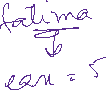 fatima
ean = 5